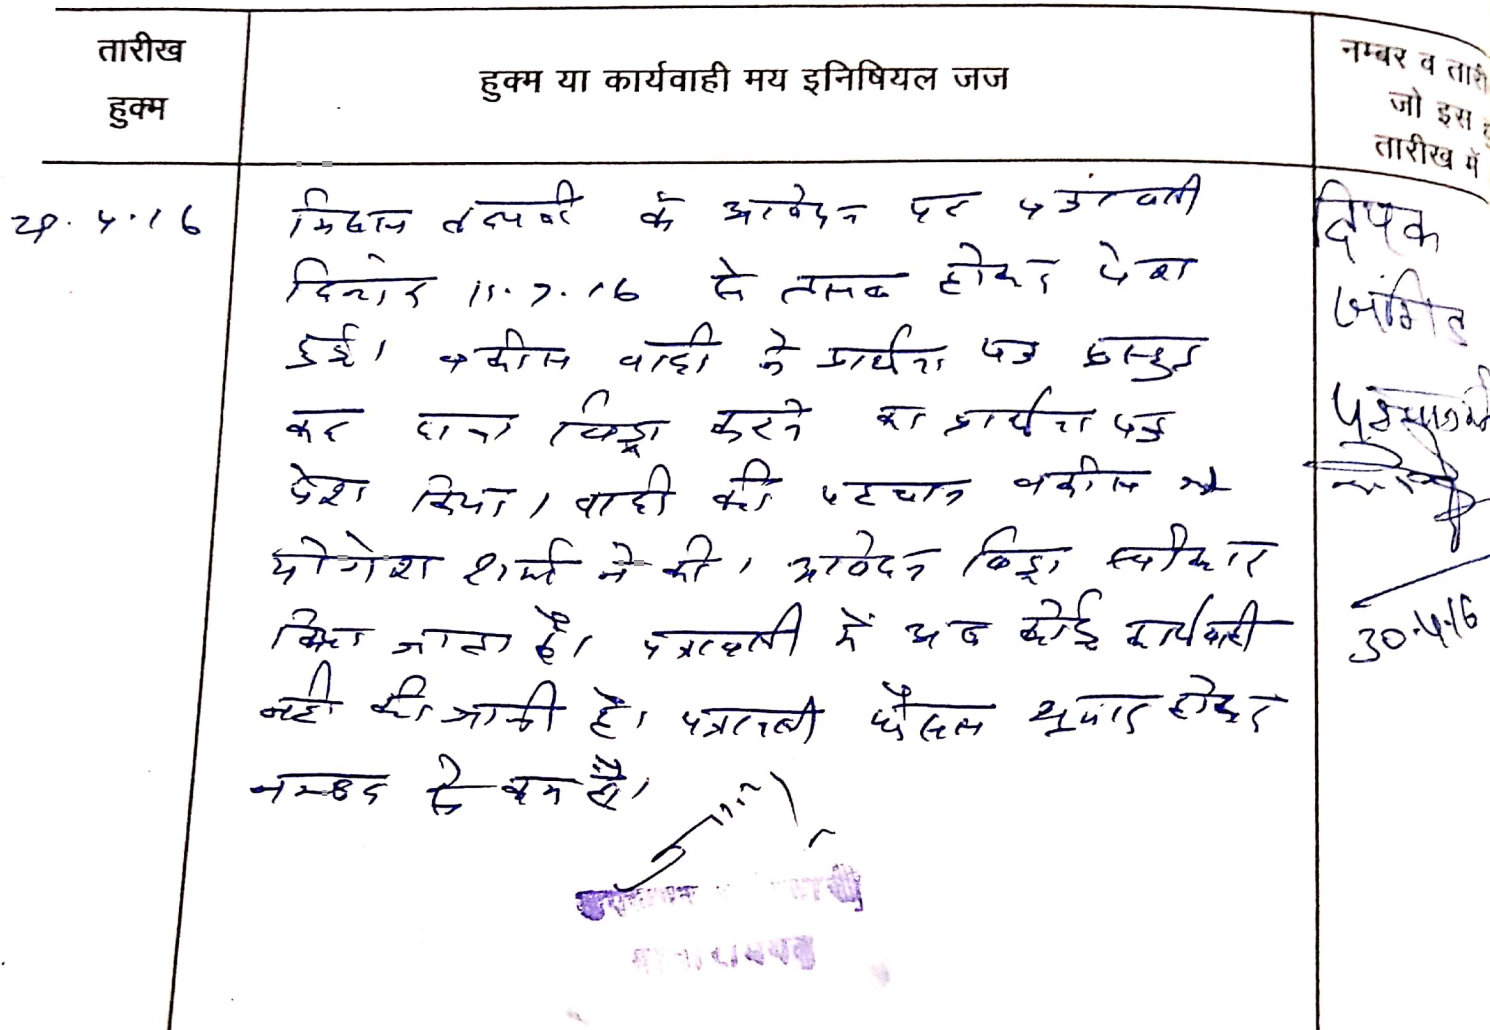 तारीख
हुक्म
हुक्म या कार्यवाही मय इनिषियल जज
नम्बर व तारी
जो इस हु
तारीख में
29.4.16
के आवेदन पर पत्रावली
दिनांक 11.7.16 से तलब होकर पेश
हुई। वकील वादी ने प्रार्थना पत्र प्रस्तुत
कर दावा विड्रा करने का प्रार्थना पत्र
पेश किया। वादी की पहचान वकील श्री
योगेश शर्मा ने की। आवेदन विड्रा स्वीकार
किया जाता है। पत्रावली में अब कोई कार्यवाही
नहीं की जानी है। पत्रावली फैसल शुमार होकर
नम्बर से कम हो।
दिपक
जांगिड
30.4.16